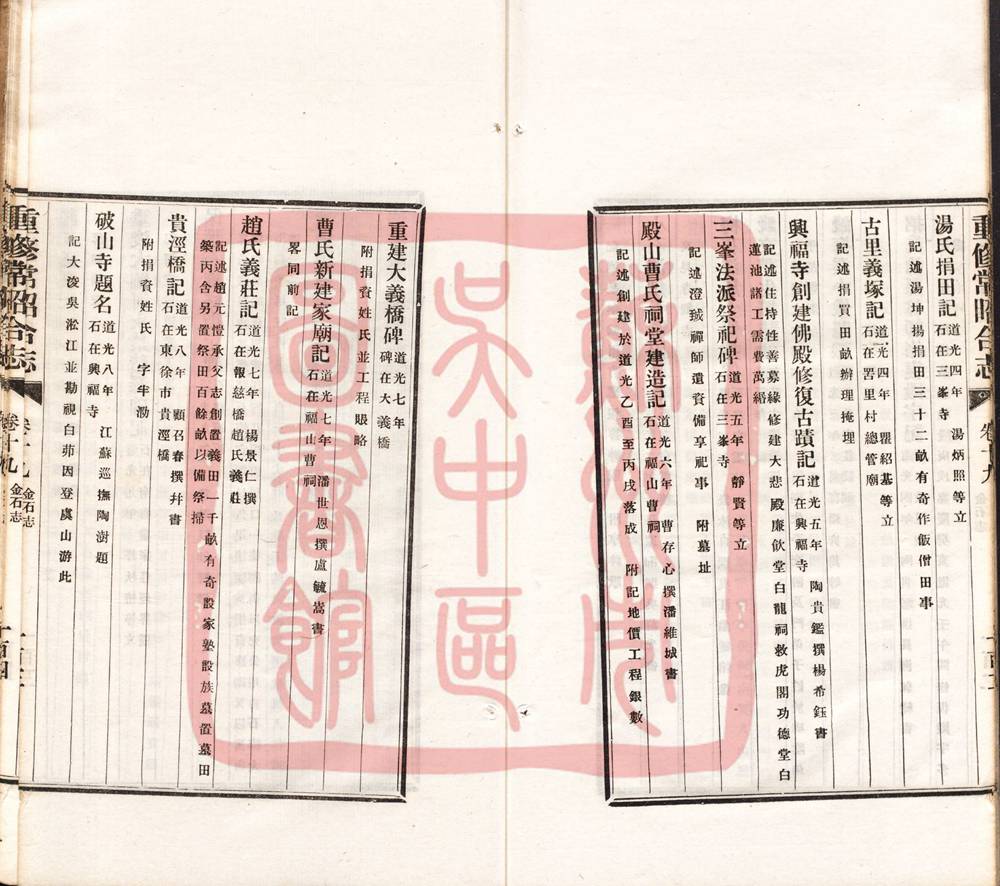 重修常昭合志
湯氏捐田記 道光四年 湯炳照等立
石在三峯寺
記述湯坤揚捐田三十二畝有奇作飯僧田事
古里義塚記 道光四年 瞿紹基等立
石在罟里村總管廟
記述捐買田畝辦理掩埋
興福寺創建佛殿修復古蹟記 道光五年 陶貴鑑撰楊希鈺書
石在興福寺
記述住持性善募緣修建大悲殿廉飲堂白龍祠救虎閣功德堂白
蓮池諸工需費萬緡
三峯法派祭祀碑 道光五年 靜賢等立
石在三峯寺
記述澄㺵禪師遺資備享祀事 附墓址
殿山曹氏祠堂建造記 道光六年 曹存心撰潘維城書
石在福山曹祠
記述創建於道光乙酉至丙戌落成 附記地價工程銀數
重建大義橋碑 道光七年
碑在大義橋
附捐資姓氏並工程賬略
曹氏新建家廟記 道光七年 潘世恩撰盧毓嵩書
石在福山曹祠
畧同前記
趙氏義莊記 道光七年 楊景仁撰
石在報慈橋趙氏義莊
記述趙元愷承父志創置義田一千畝有奇設家塾設族墓置墓田
築丙舍另置祭田百餘畝以備祭掃
貴涇橋記 道光八年 顧召春撰幷書
石在東徐市貴涇橋
附捐資姓氏 字半泐
破山寺題名 道光八年 江蘇巡撫陶澍題
石在興福寺
記大浚吳淞江並勘視白茆因登虞山游此
重修常昭合志
卷十九 金石志
蘇州市
吳中區
圖書館